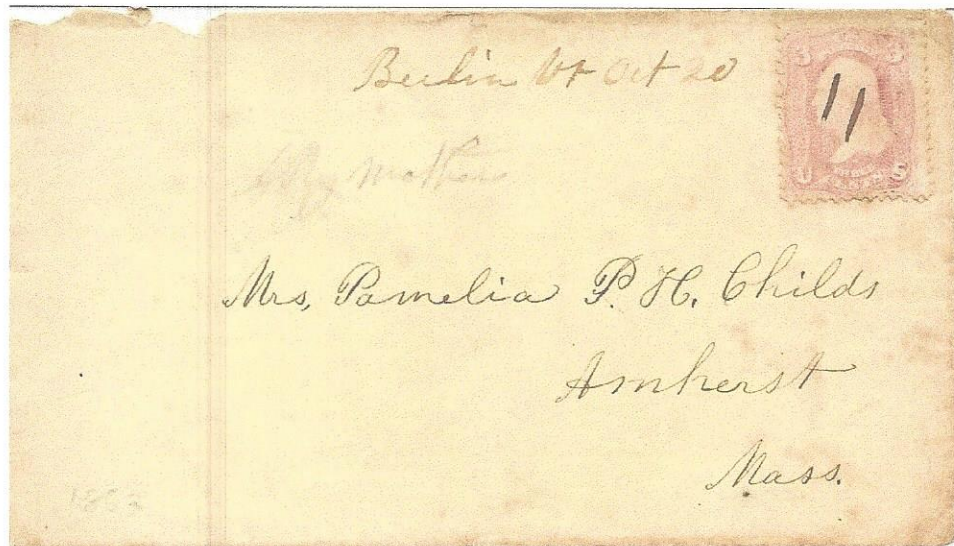 Berlin Vt Oct 20
3 3
U S
Mother
Mrs, Pamelia P. H. Childs
Amherst
Mass.